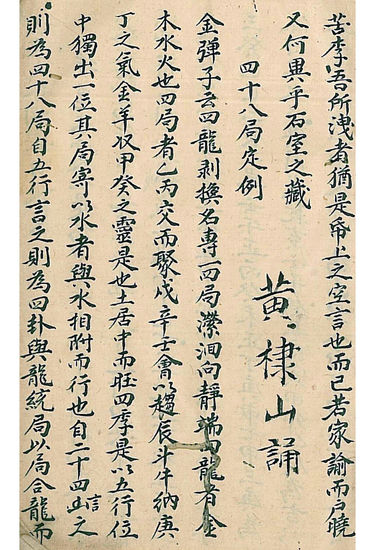 苦李吾所洩者猶是帋上之空言也而已若家諭而戶曉
又何異乎石室之藏
黃棣山誦
四十八局定例
金彈子云四龍剥換名專一四局瀠洄向静端四龍者金
木水火也四局者乙丙交而聚戌辛壬會以趨辰斗牛納庚
丁之氣金羊收甲癸之靈是也土居中而旺四季是以五行位
中獨出一位其局寄以水者與水相附而行也自二十四山言之
則為四十八局自五行言之則為四卦與龍統局以局合龍而